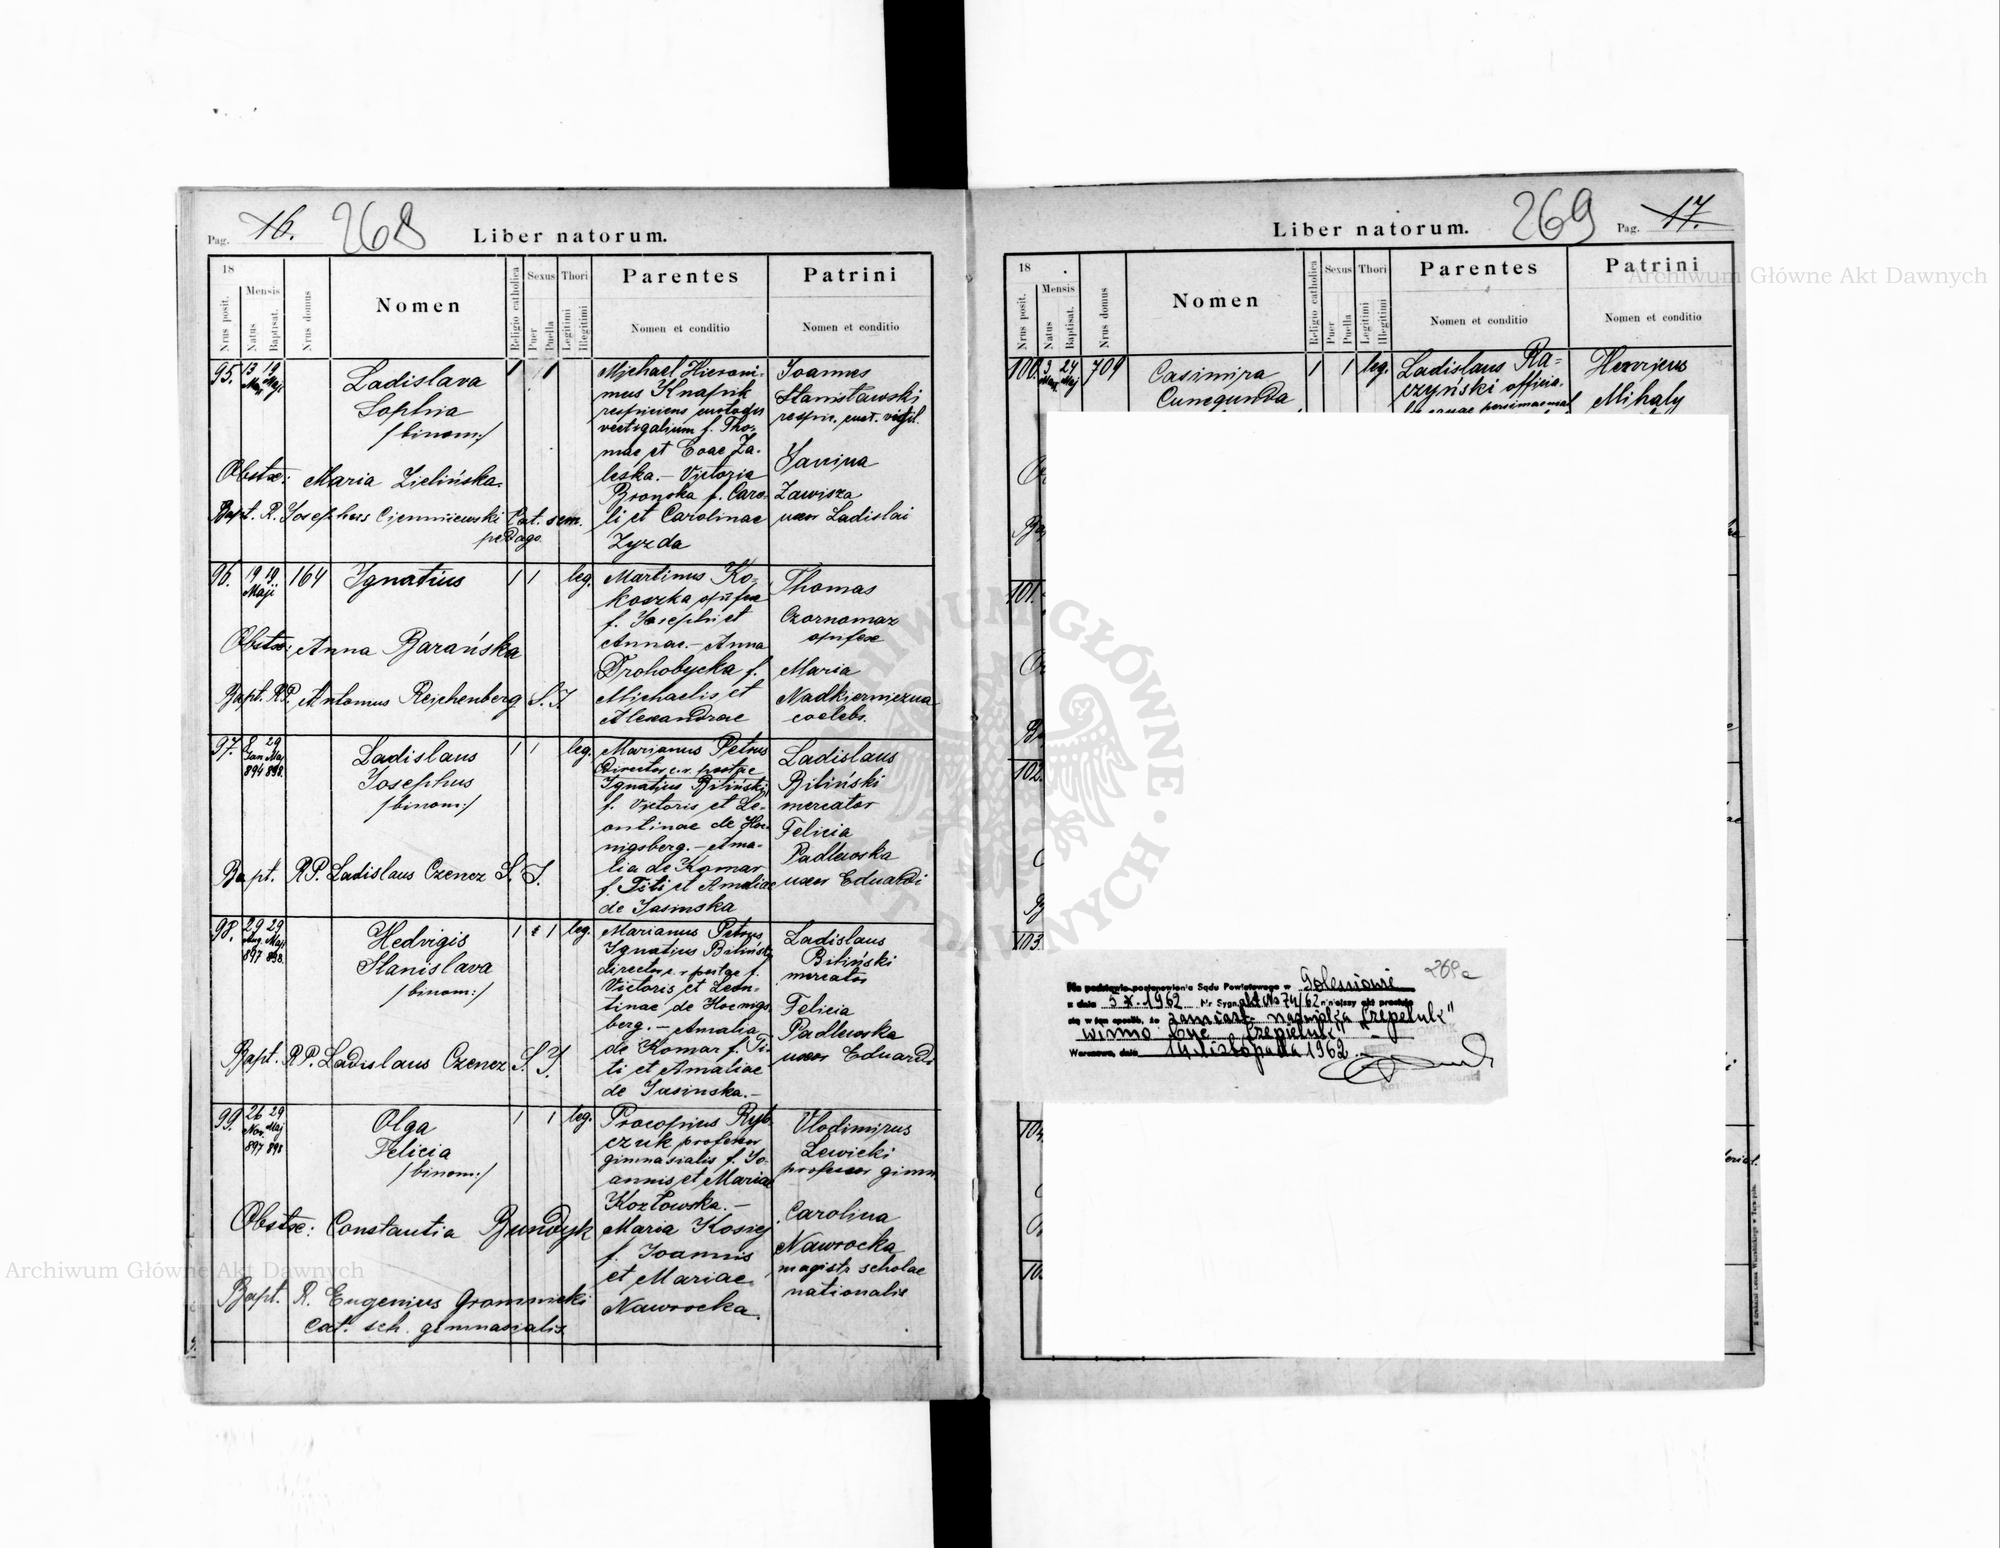 Pag. 16. 268 Liber natorum.
18
Nrus posit.
Mensis
Natus
Baptisat.
Nrus domus
Nomen
Religio catholica
Sexus
Puer
Puella
Thori
Legitimi
Illegitimi
Parentes
Nomen et conditio
Patrini
Nomen et conditio
95. 13 19
Ladislava
Sophia
/binom:/
1 1
Michael Hieroni-
mus Knapik
respiciens custodys
vectigalium f. Tho-
mae et Evae Za-
leska. - Victoria
Bronska f. Caro-
li et Carolinae
Zyzda
Joannes
Stanisławski
Janina
Zawisza
uxor Ladislai
Obstx: Maria Zielińska.
Bapt. R. Josephus Ciemniewski Cat. sem.
pedago.
96. 19 19
Maji
164
Ignatius
1 1 leg.
Martinus Ko-
koszka opifex
f. Josephi et
Annae. - Anna
Drohobycka f.
Michaelis et
Alexandrae
Thomas
Czornomaz
opifex
Maria
coelebs.
Obstx: Anna Barańska
Bapt. RP. Antonius Reichenberg S. J.
97. 8 29
Jan Maj
894 898.
Ladislaus
Josephus
/binom:/
1 1 leg.
Marianus Petrus
Director c. r. postae
Ignatius Biliński
f. Victoris et Le-
ontinae de Hoe-
nigsberg. - Ama-
lia de Komar
f. Titi et Amaliae
de Jasinska
Ladislaus
Biliński
mercator
Felicia
Padlewska
uxor Eduardi
Bapt. RP. Ladislaus Czencz S. J.
98. 29 29
Aug. Maji
897 898.
Hedvigis
Stanislava
/binom:/
1 1 leg.
Marianus Petrus
Ignatius Biliński
director c. r. postae f.
Victoris et Leon-
tinae de Hoenigs-
berg. - Amalia
de Komar f. Ti-
ti et Amaliae
de Jasinska. -
Ladislaus
Biliński
mercator
Felicia
Padlewska
uxor Eduardi
Bapt. RP. Ladislaus Czencz S. J.
99. 26 29
Nov. Maj
897 898
Olga
Felicia
/binom:/
1 1 leg.
Procopius Ryb-
czuk professor
gimnasialis f. Jo-
annis et Mariae
Kozłowska. -
Maria Kosiej
f. Joannis
et Mariae
Nawrocka.
Vlodimirus
Lewicki
professor gimn.
Carolina
Nawrocka
magistr scholae
nationalis
Obstx: Constantia Bundyk
Bapt. R. Eugenius Gromnicki
Cat. sch. gimnasialis.
Liber natorum. 269 Pag. 17.
18
Nrus posit.
Mensis
Natus
Baptisat.
Nrus domus
Nomen
Religio catholica
Sexus
Puer
Puella
Thori
Legitimi
Illegitimi
Parentes
Nomen et conditio
Patrini
Nomen et conditio
100. 3 24
Maj
709
Casimira
Cunegunda
1 1 leg.
Ladislaus Ra-
czyński officia-
Henricus
Mihaly
101.
102.
103.
269a
Na podstawie postanowienia Sądu Powiatowego w Goleniowie
z dnia 5 X. 1962 Nr Sygn. akt Ns 74/62 niniejszy akt prostuje
się w ten sposób, że zamiast nazwiska "Czepeluk"
winno być "Czepieluk"
Warszawa, dnia 14 listopada 1962.
104.
Archiwum Główne Akt Dawnych
Archiwum Główne Akt Dawnych
ARCHIWUM GŁÓWNE AKT DAWNYCH